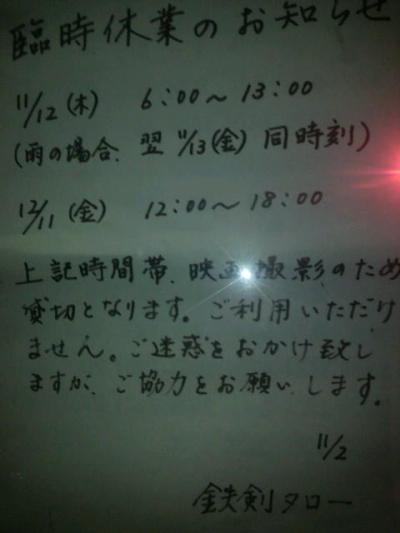 臨時休業のお知らせ
11/12(木) 6:00〜13:00
(雨の場合、翌11/13(金)同時刻)
12/11(金) 12:00〜18:00
上記時間帯、映画撮影のため
貸切となります。ご利用いただけ
ません。ご迷惑をおかけ致し
ますが、ご協力をお願いします。
11/2
鉄剣タロー